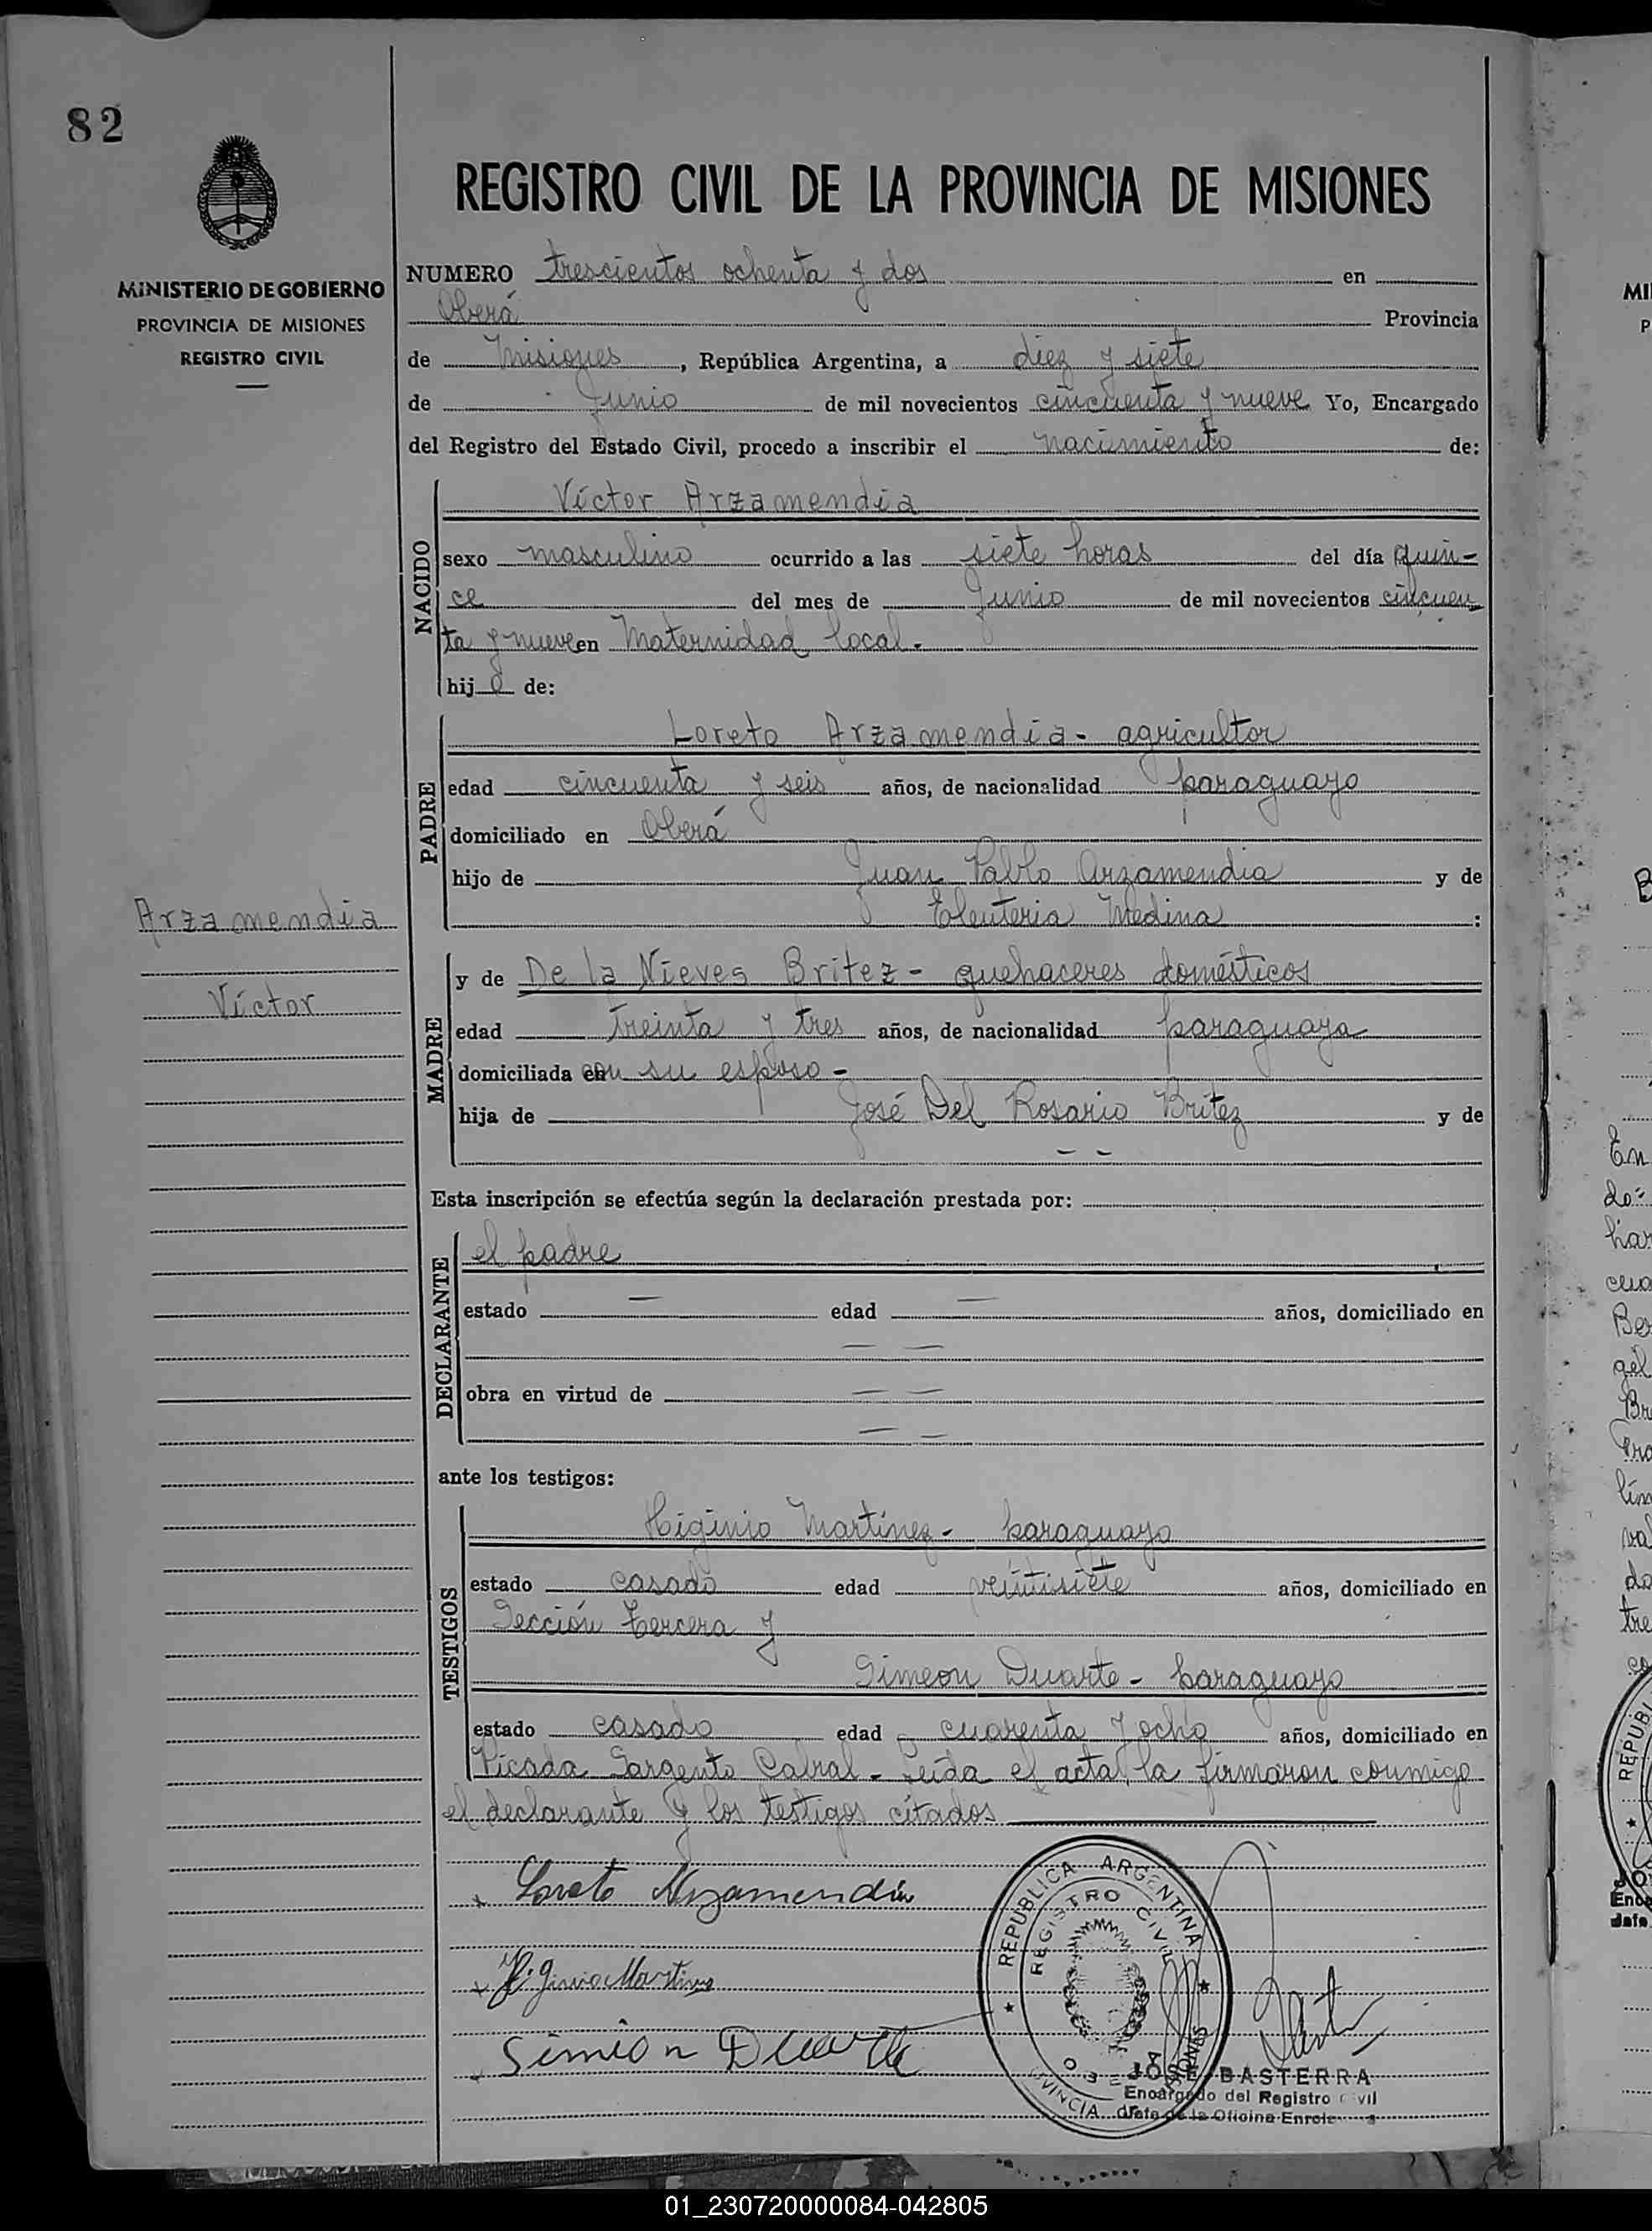 82
MINISTERIO DE GOBIERNO
PROVINCIA DE MISIONES
REGISTRO CIVIL
REGISTRO CIVIL DE LA PROVINCIA DE MISIONES
NUMERO trescientos ochenta y dos en
Oberá Provincia
de Misiones, República Argentina, a diez y siete
de Junio de mil novecientos cincuenta y nueve Yo, Encargado
del Registro del Estado Civil, procedo a inscribir el nacimiento de:
NACIDO
Víctor Arzamendia
sexo masculino ocurrido a las siete horas del día quin-
ce del mes de Junio de mil novecientos cincuen
ta y nueve en Maternidad local.-
hijo de:
PADRE
Loreto Arzamendia - agricultor
edad cincuenta y seis años, de nacionalidad paraguayo
domiciliado en Oberá
hijo de Juan Pablo Arzamendia y de
Eleuteria Medina :
Arzamendia
Víctor
MADRE
y de De la Nieves Britez - quehaceres domésticos
edad treinta y tres años, de nacionalidad paraguaya
domiciliada con su esposo -
hija de José Del Rosario Britez y de
- -
Esta inscripción se efectúa según la declaración prestada por:
DECLARANTE
el padre
estado — edad — años, domiciliado en
— —
obra en virtud de — —
— —
ante los testigos:
TESTIGOS
Higinio Martinez - paraguayo
estado casado edad veintisiete años, domiciliado en
Sección tercera y
Simeon Duarte - paraguayo
estado casado edad cuarenta y ocho años, domiciliado en
Picada Sargento Cabral - Leída el acta, la firmaron conmigo
el declarante y los testigos citados
x Loreto Arzamendia
x Higinio Martinez
x Simion Duarte
REPUBLICA ARGENTINA
REGISTRO CIVIL
OBERA
PROVINCIA DE MISIONES
JOSE BASTERRA
Encargado del Registro Civil
Jefe de la Oficina Enrola
01_230720000084-042805